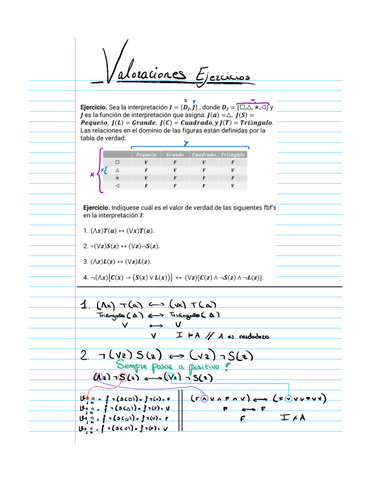 Valoraciones Ejercicios
Ejercicio. Sea la interpretación I = (D_I, J) , donde D_I = {□, △, ★, ◁} y
J es la función de interpretación que asigna: J(a) = △, J(S) =
Pequeño, J(L) = Grande, J(C) = Cuadrado, y J(T) = Triángulo.
Las relaciones en el dominio de las figuras están definidas por la
tabla de verdad:
y
Pequeño Grande Cuadrado Triángulo
x
Ejercicio. Indíquese cuál es el valor de verdad de las siguientes fbf's
en la interpretación I:
1. (⋀x)T(a) ↔ (⋁x)T(a).
2. ¬(⋁z)S(z) ↔ (⋁z)¬S(z).
3. (⋀z)L(z) ↔ (⋁z)L(z).
4. ¬(⋀x)[C(x) → (S(x) ∨ L(x))] ↔ (⋁x)[C(x) ∧ ¬S(x) ∧ ¬L(x)].
1. (⋀x) T(a) ↔ (⋁x) T(a)
Triángulo(△) ↔ Triángulo(△)
V ↔ V
V I ⊨ A // A es verdadero
2. ¬(⋁z) S(z) ↔ (⋁z) ¬S(z)
Siempre pasar a positivo!
(⋀z) ¬S(z) ↔ (⋁z) ¬S(z)
(F ∧ V ∧ F ∧ V) ↔ (F ∨ V ∨ F ∨ V)
F ↔ F
F I ⊭ A